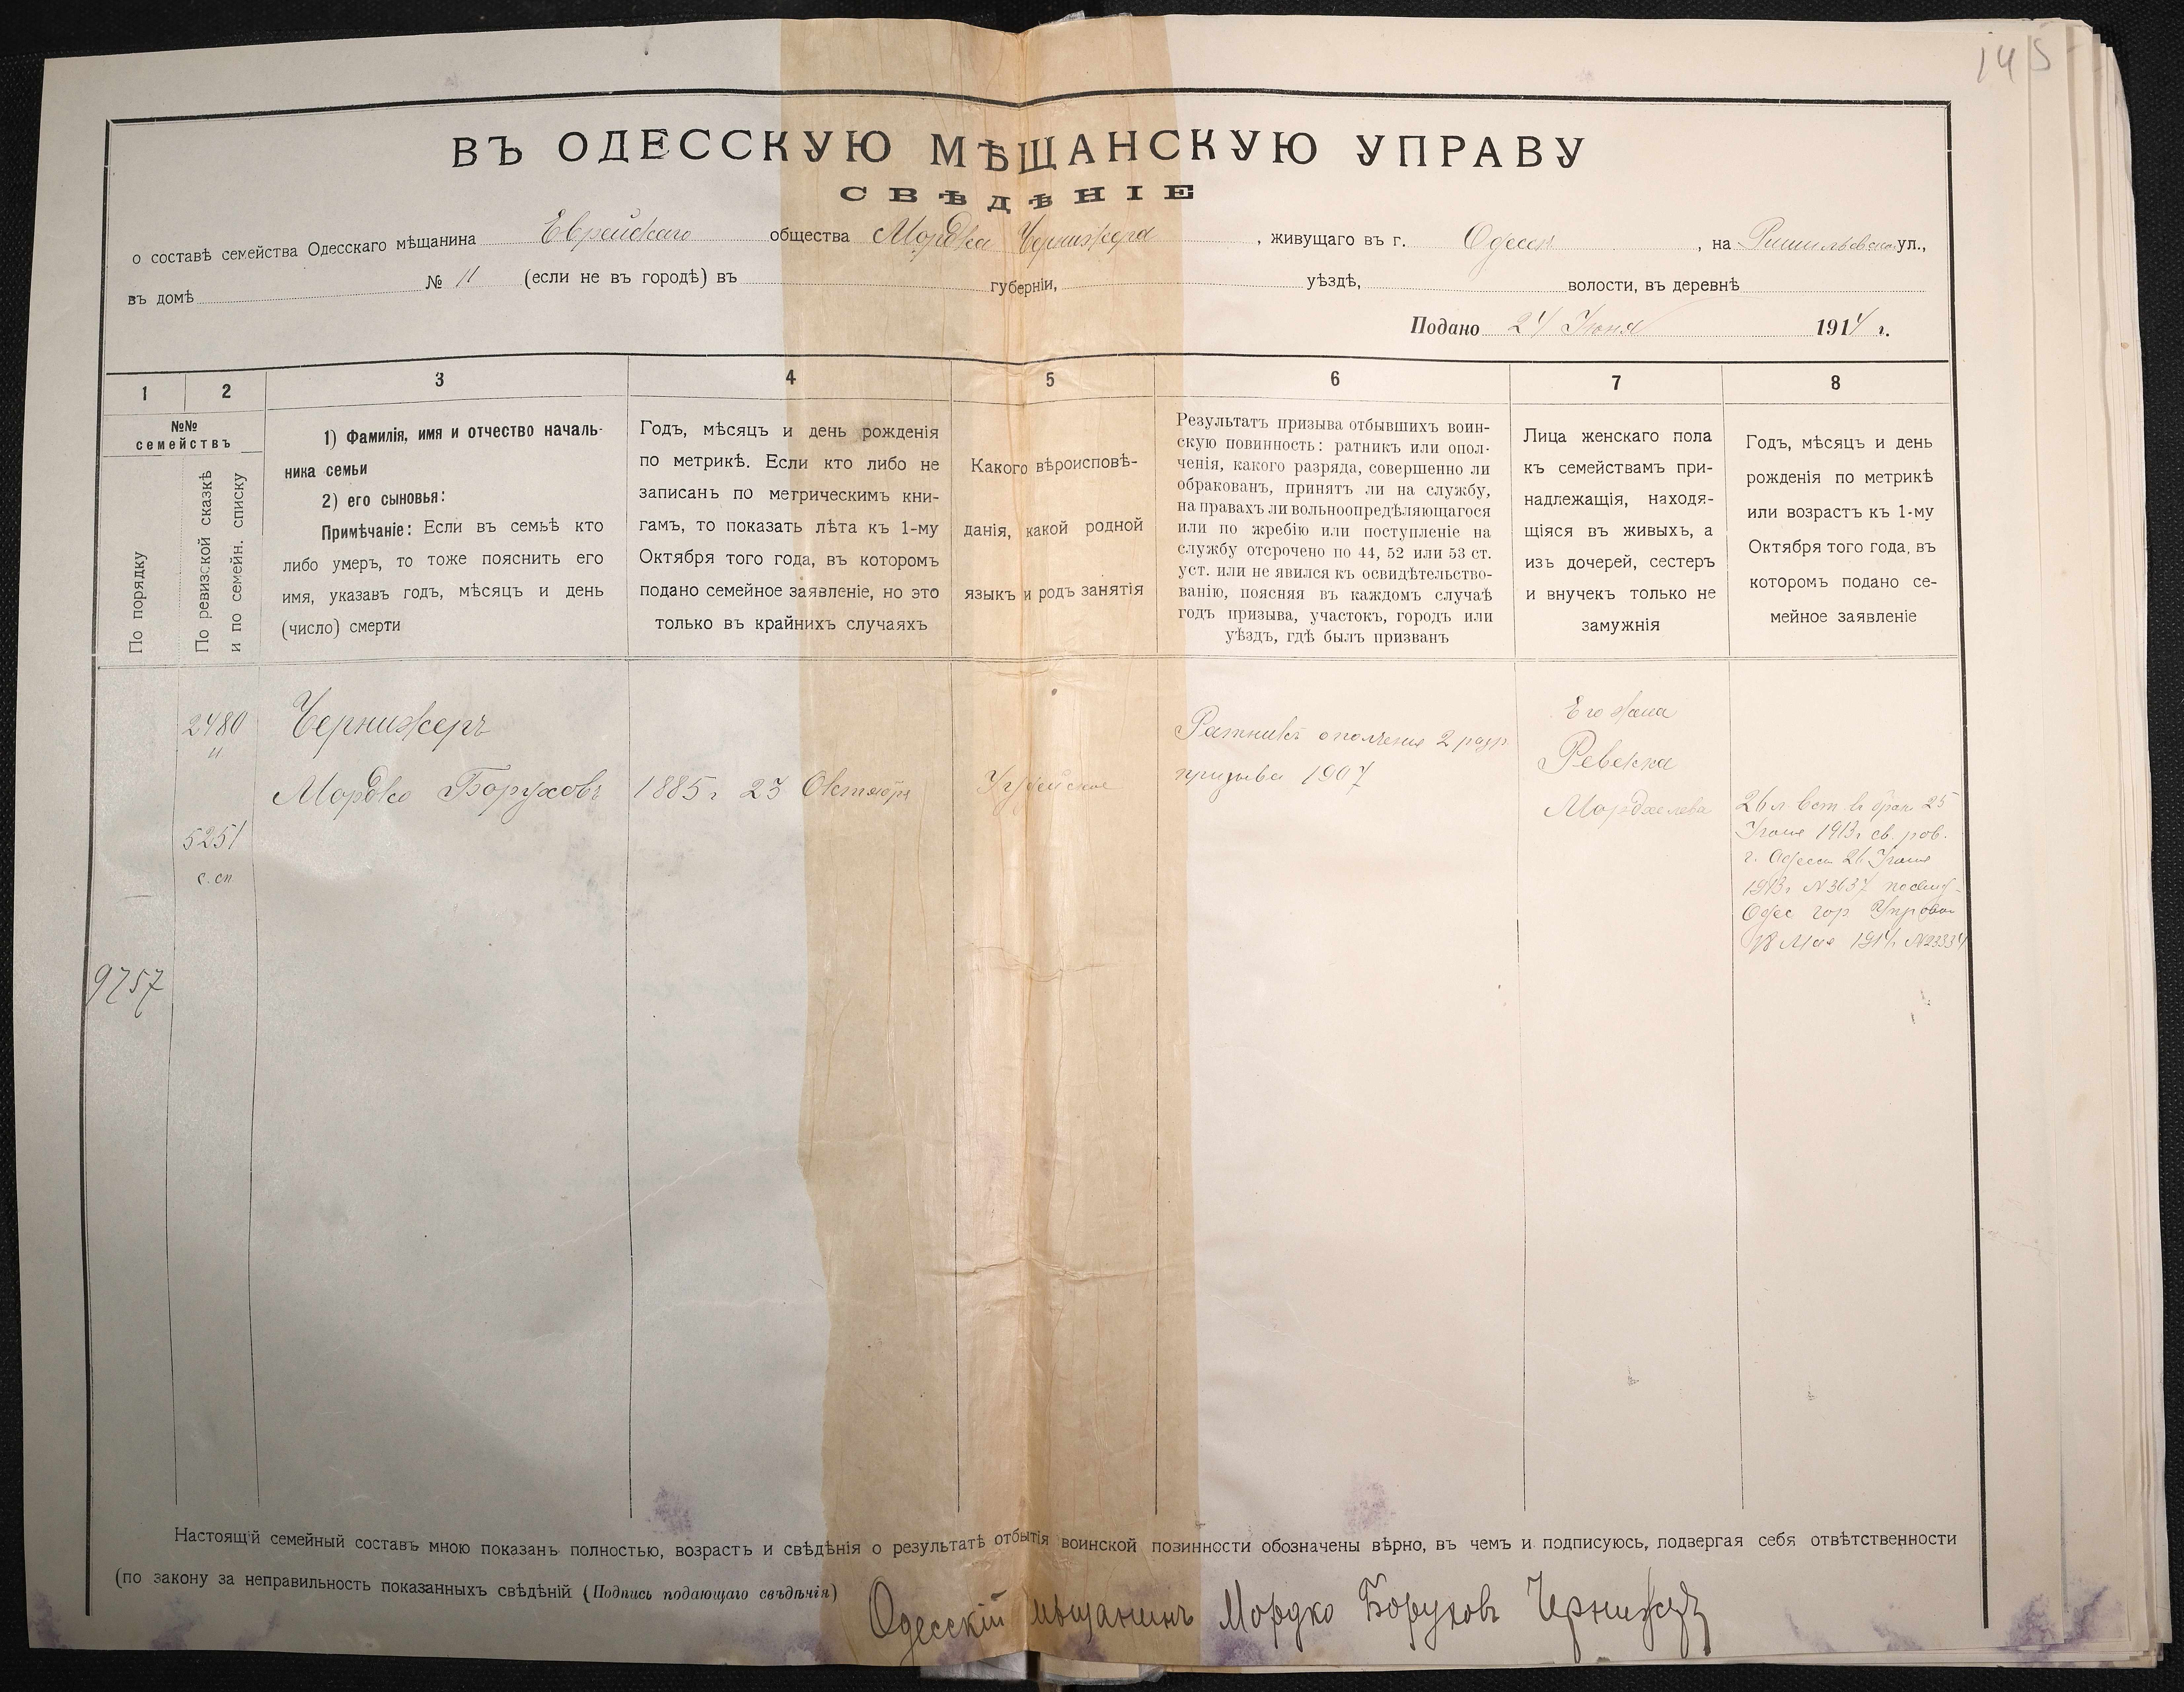 145
ВЪ ОДЕССКУЮ МѢЩАНСКУЮ УПРАВУ
СВѢДѢНІЕ
о составѣ семейства Одесскаго мѣщанина Еврейскаго общества Мордка Чернижера, живущаго въ г. Одессѣ, на ул.,
въ домѣ № 11 (если не въ городѣ) въ губерніи, уѣздѣ, волости, въ деревнѣ
Подано 24 Іюня 1914 г.
1 2 3 4 5 6 7 8
№№
семействъ
По порядку
По ревизской сказкѣ
и по семейн. списку
1) Фамилія, имя и отчество началь-
ника семьи
2) его сыновья:
Примѣчаніе: Если въ семьѣ кто
либо умеръ, то тоже пояснить его
имя, указавъ годъ, мѣсяцъ и день
(число) смерти
Годъ, мѣсяцъ и день рожденія
по метрикѣ. Если кто либо не
записанъ по метрическимъ кни-
гамъ, то показать лѣта къ 1-му
Октября того года, въ которомъ
подано семейное заявленіе, но это
только въ крайнихъ случаяхъ
Какого вѣроисповѣ-
данія, какой родной
языкъ и родъ занятія
Результатъ призыва отбывшихъ воин-
скую повинность: ратникъ или опол-
ченія, какого разряда, совершенно ли
обракованъ, принятъ ли на службу,
на правахъ ли вольноопредѣляющагося
или по жребію или поступленіе на
службу отсрочено по 44, 52 или 53 ст.
уст. или не явился къ освидѣтельство-
ванію, поясняя въ каждомъ случаѣ
годъ призыва, участокъ, городъ или
уѣздъ, гдѣ былъ призванъ
Лица женскаго пола
къ семействамъ при-
надлежащія, находя-
щіяся въ живыхъ, а
изъ дочерей, сестеръ
и внучекъ только не
замужнія
Годъ, мѣсяцъ и день
рожденія по метрикѣ
или возрастъ къ 1-му
Октября того года, въ
которомъ подано се-
мейное заявленіе
9757
2480
и
5251
с. сп
Чернижеръ
Мордко Боруховъ
1885 г 23 Октября
Іудейское
Ратникъ ополченія 2 разр
призыва 1907
Его жена
Ревекка
Мордхелева
26 л вст въ брак 25
Іюня 1913 г св. рав.
г. Одессы 26 Іюня
1913 г № 3637
Одес гор Управы
18 Мая 1914 г № 23334
Настоящій семейный составъ мною показанъ полностью, возрастъ и свѣдѣнія о результатѣ отбытія воинской повинности обозначены вѣрно, въ чемъ и подписуюсь, подвергая себя отвѣтственности
(по закону за неправильность показанныхъ свѣдѣній (Подпись подающаго свѣдѣнія)
Одесскій мѣщанинъ Мордко Боруховъ Чернижеръ